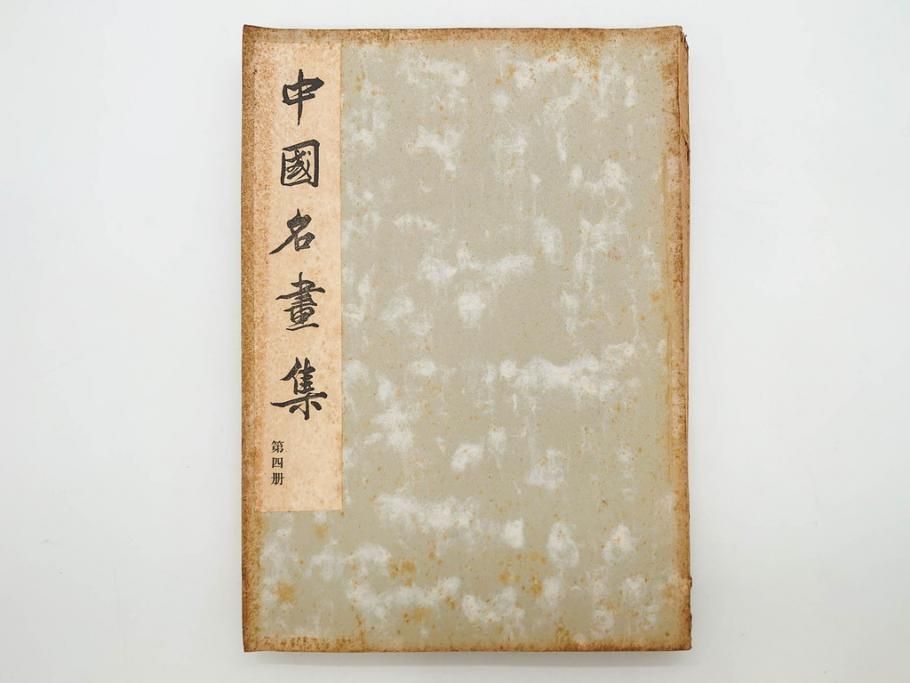 中國名畫集
第四册